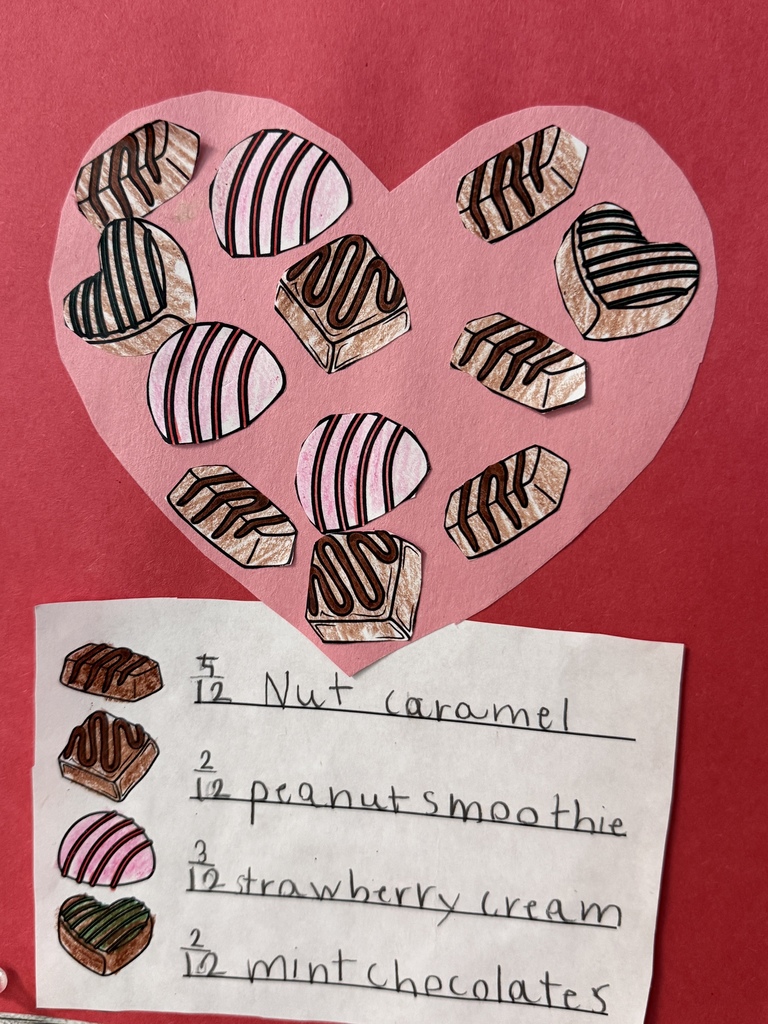 5/12 Nut caramel
2/12 peanut smoothie
3/12 strawberry cream
2/12 mint chocolates